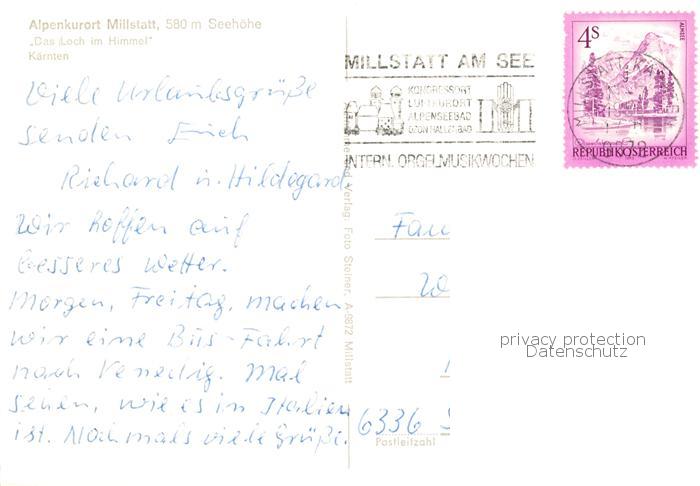 Alpenkurort Millstatt, 580 m Seehöhe
„Das Loch im Himmel"
Kärnten
Viele Urlaubsgrüße
senden Euch
Richard u. Hildegard
Wir hoffen auf
besseres Wetter.
Morgen, Freitag, machen
wir eine Bus-Fahrt
nach Venedig. Mal
sehen, wie es in Italien
ist. Nochmals viele Grüße.
Verlag: Foto Steiner, A-9872 Millstatt
MILLSTATT AM SEE
KONGRESSORT
LUFTKURORT
ALPENSEEBAD
OZON HALLENBAD
INTERN. ORGELMUSIKWOCHEN
4S
ALMSEE
REPUBLIK ÖSTERREICH
Fam
W
privacy protection
Datenschutz
6336
Postleitzahl